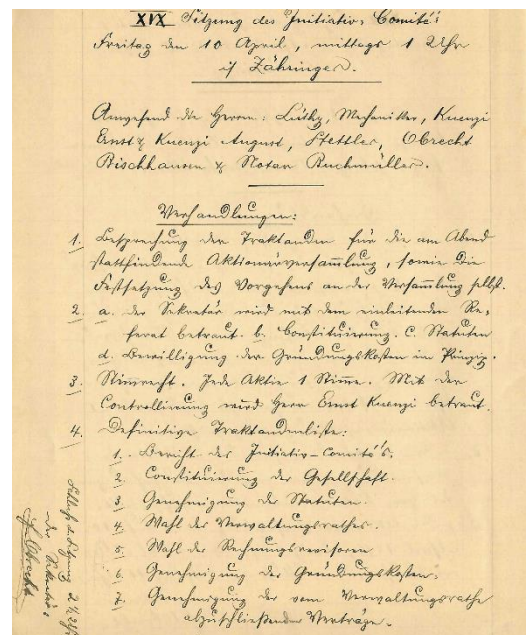 XVX Sitzung des Initiativ-Comité's
Freitag den 10 April, mittags 1 Uhr
Zähringer.
Anwesend die Herren: Lüthy, Mechaniker, Kuenzi
Ernst & Kuenzi August, Stettler, Obrecht
Bischhausen & Notar Buchmüller.
Verhandlungen:
1. Besprechung der Traktanden für die am Abend
stattfindende Aktionärversam̄lung, sowie die
Festsetzung des Vorgehens an der Versam̄lung selbst.
2. a. der Sekretär wird mit dem einleitenden Re-
ferat betraut. b. Constituierung. c. Statuten
d. Bewilligung der Gründungskosten im Prinzip.
3. Stim̄recht. Jede Aktie 1 Stim̄e. Mit der
Controllierung wird Herr Ernst Kuenzi betraut.
4. Definitive Traktandenliste:
1. Bericht des Initiativ-Comité's.
2. Constituierung der Gesellschaft.
3. Genehmigung der Statuten.
4. Wahl des Verwaltungsrathes.
5. Wahl der Rechnungsrevisoren
6. Genehmigung der Gründungskosten.
7. Genehmigung der vom Verwaltungsrathe
abzuschließenden Verträge.
Schluss der Sitzung 2 1/2 Uhr
Der Sekretär:
Obrecht